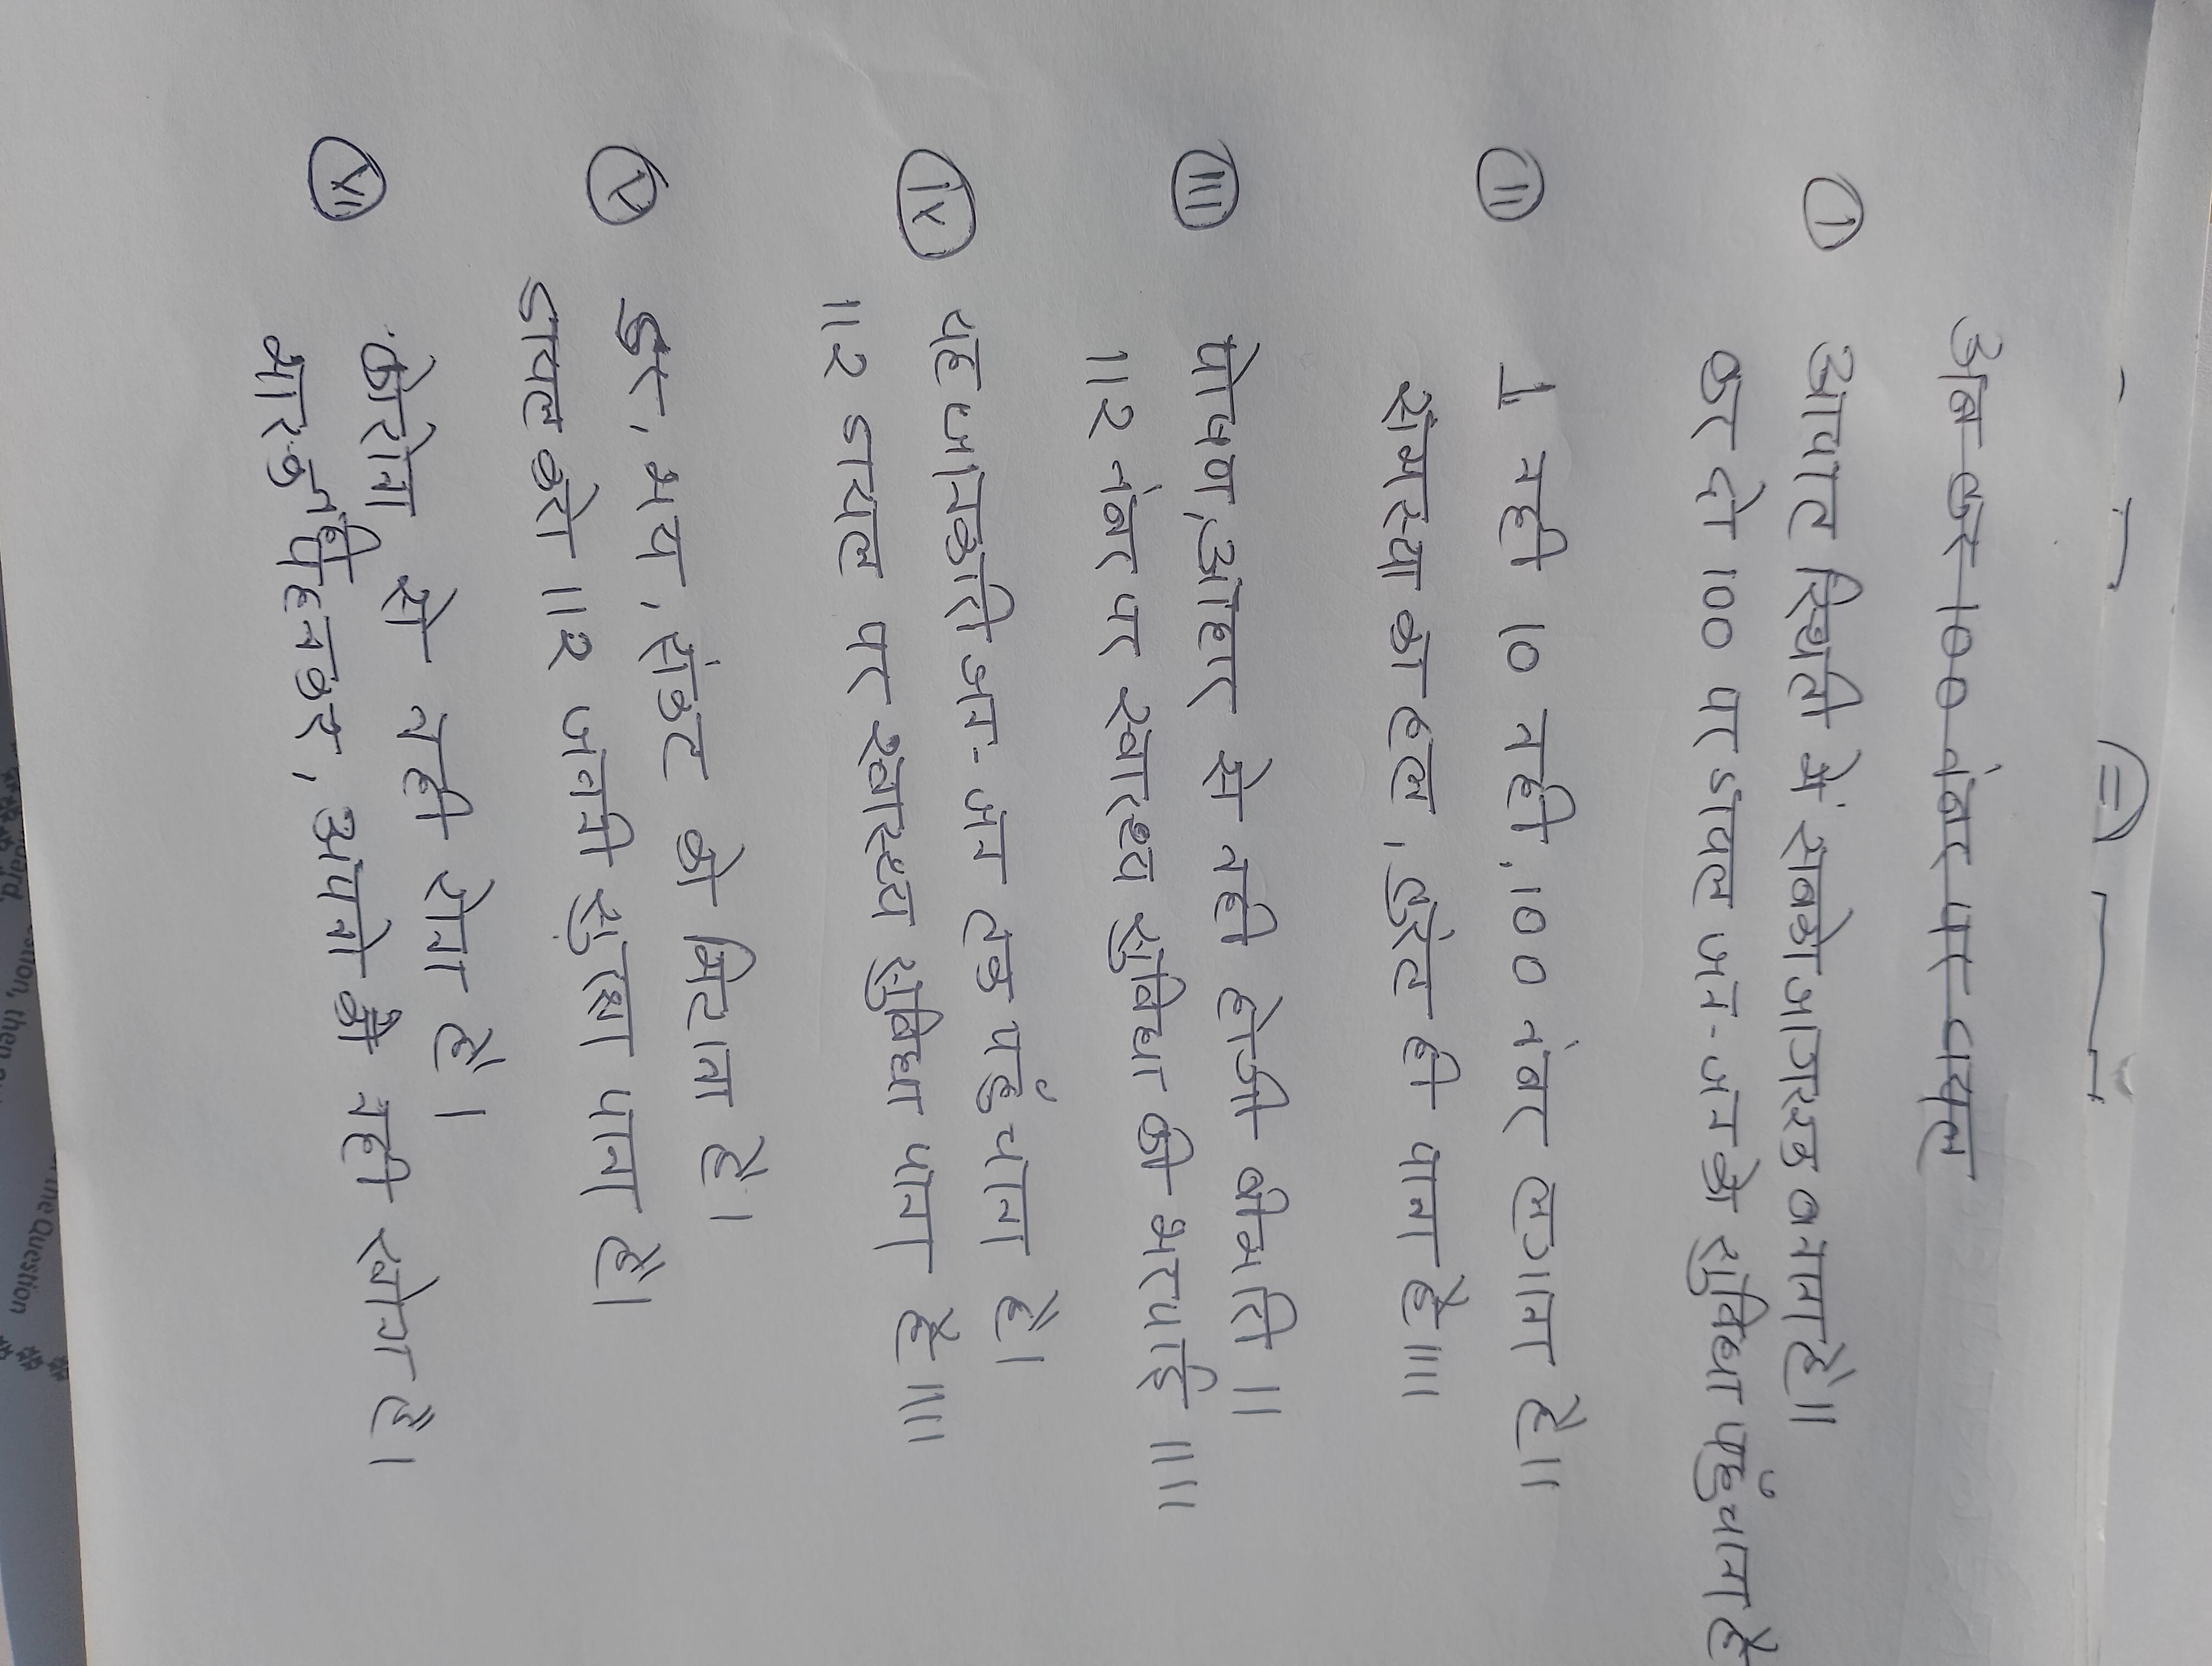 अब कर 100 नंबर पर डायल
① आपात स्थिती में सबको जागरूक बनाना है॥
कर दो 100 पर डायल जन-जन को सुविधा पहुंचाना है
② 1 नही 10 नही, 100 नंबर लगाना है॥
समस्या का हल, तुरंत ही पाना है॥॥
③ पोषण, आहार से नही होगी बीमारी॥
112 नंबर पर स्वास्थ्य सुविधा की भरपाई॥॥
④ यह जानकारी जन-जन तक पहुंचाना है।
112 डायल पर स्वास्थ्य सुविधा पाना है॥॥
⑤ डर, भय, संकट को मिटाना है।
डायल करो 112 जननी सुरक्षा पाना है।
⑥ कोरोना से नही रोना है।
मास्क पहनकर, अपनो को नही खोना है।